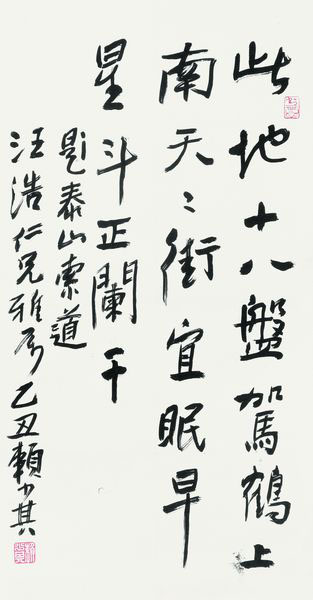 此地十八盤駕鶴上
南天〻街宜眠早
星斗正闌干
題泰山索道
汪浩仁兄雅属乙丑賴少其